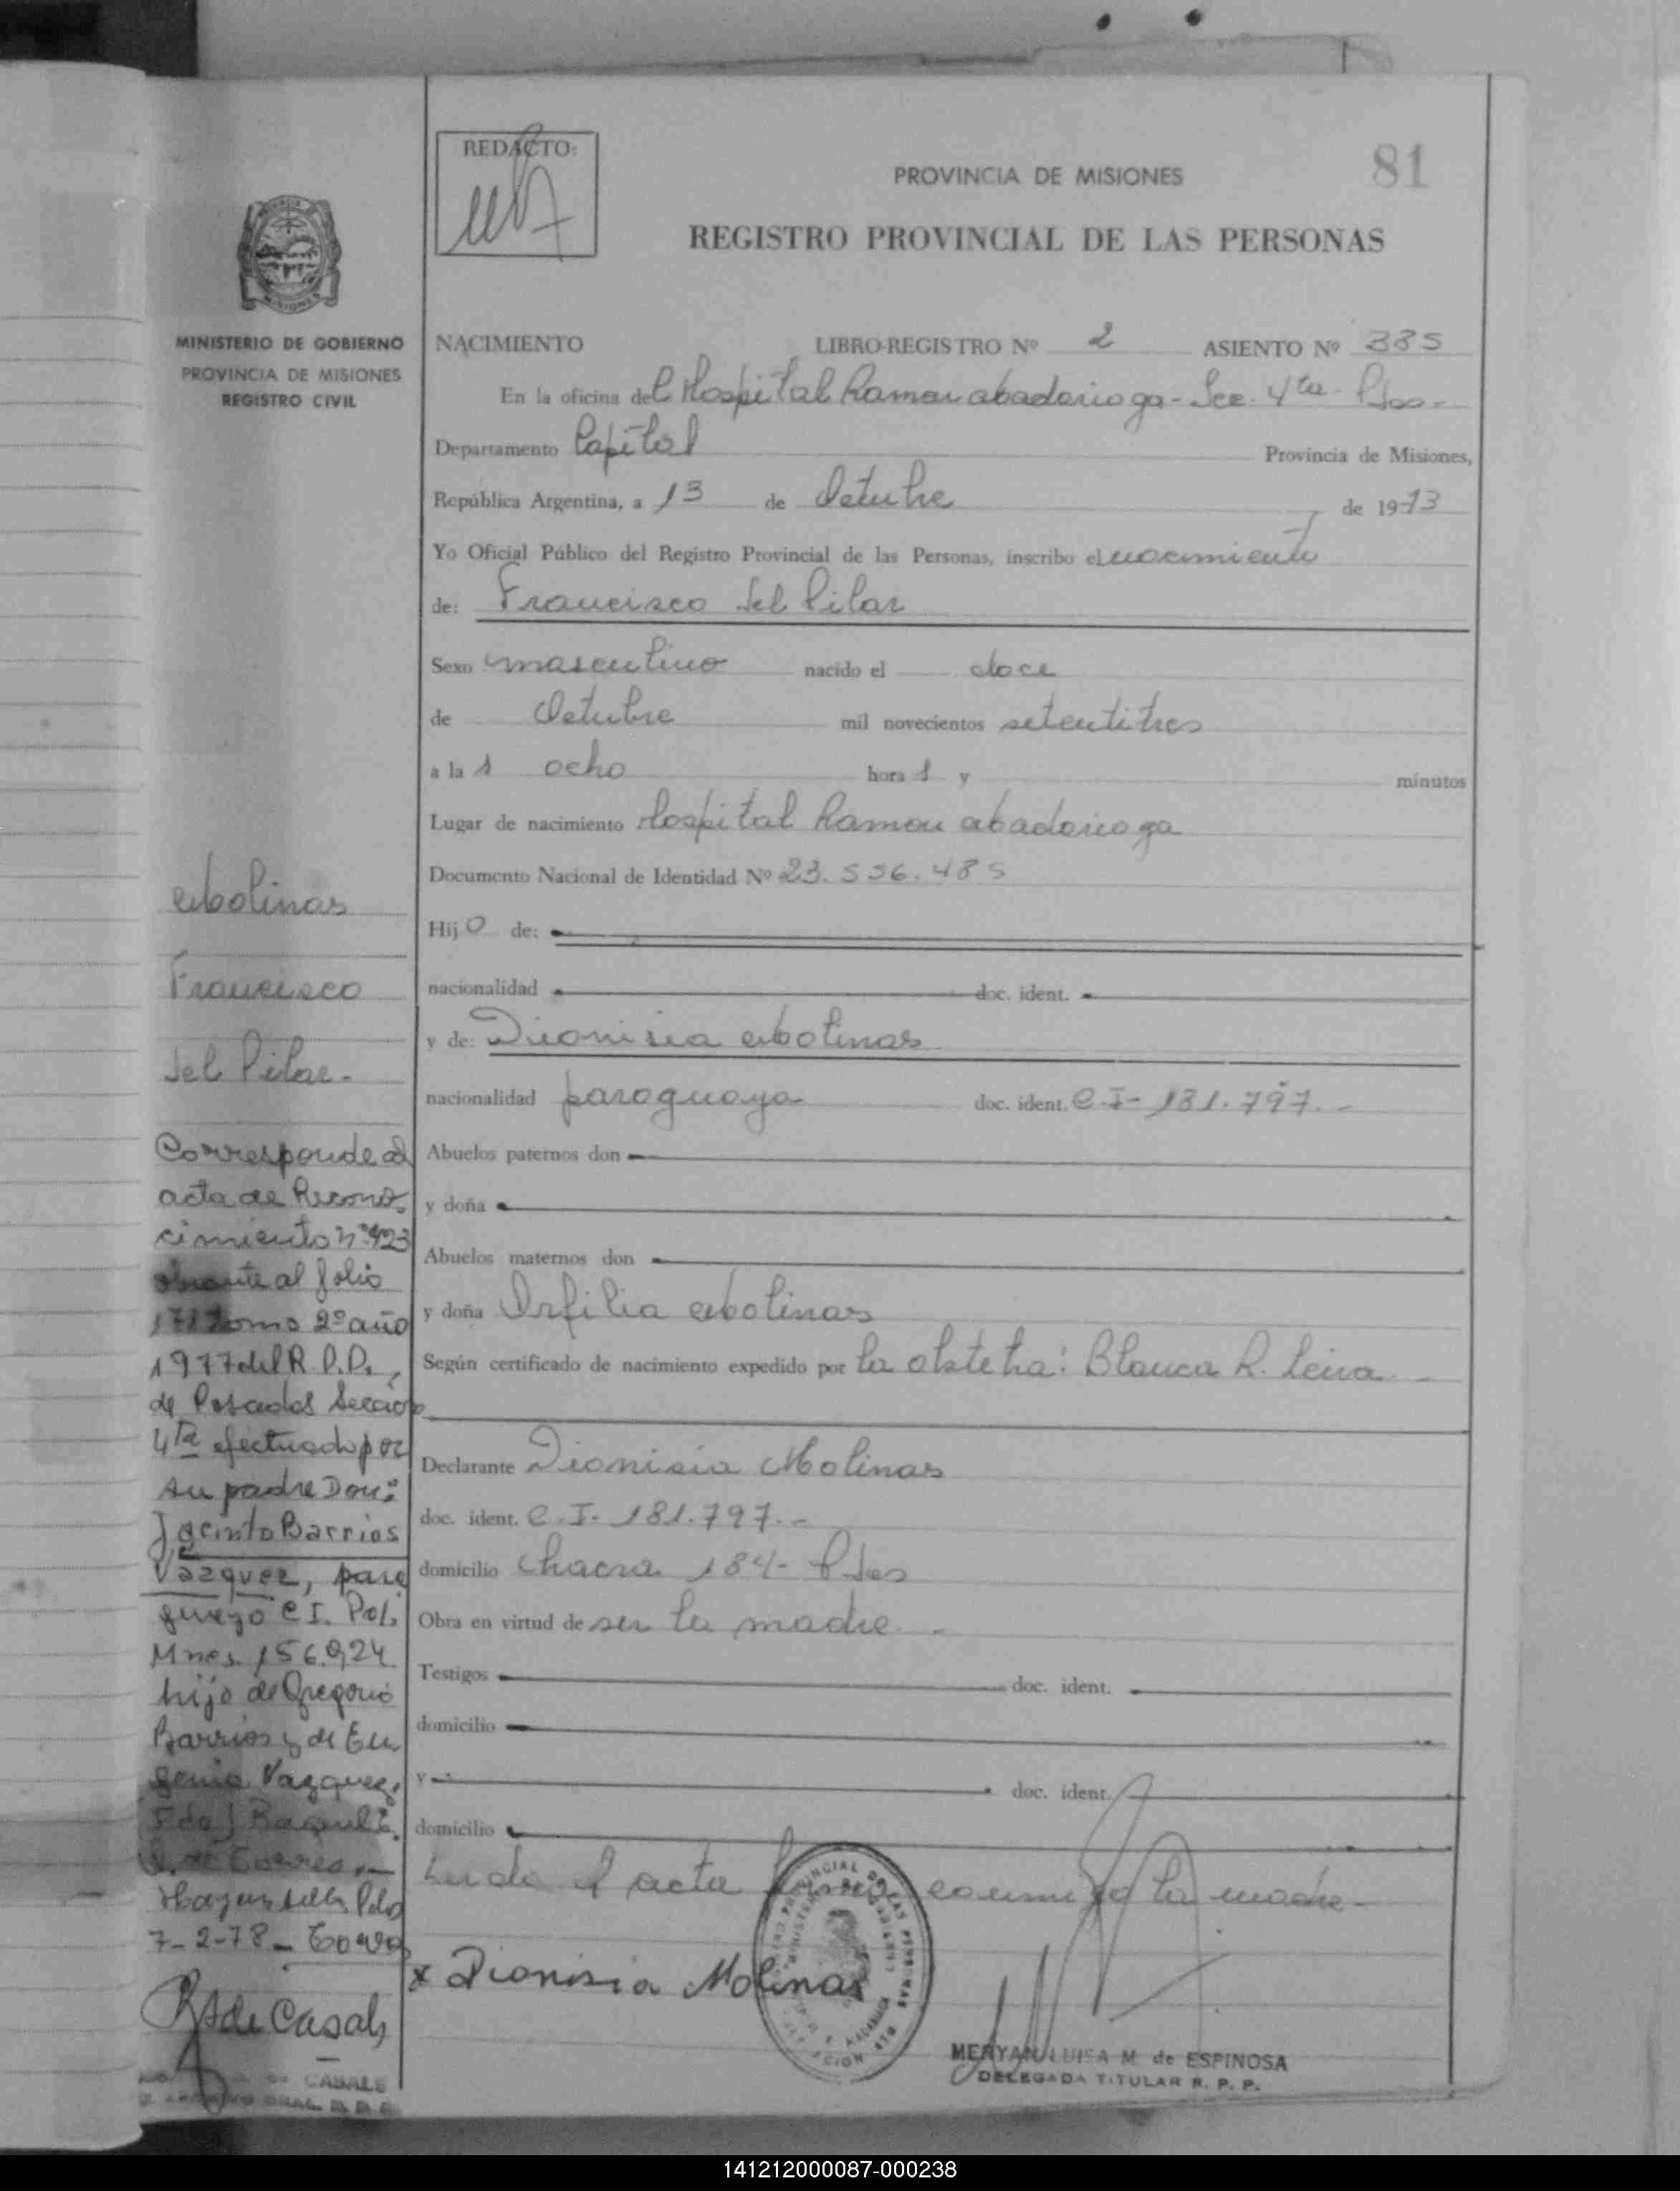 REDACTO:
PROVINCIA DE MISIONES
81
REGISTRO PROVINCIAL DE LAS PERSONAS
MINISTERIO DE GOBIERNO
PROVINCIA DE MISIONES
REGISTRO CIVIL
NACIMIENTO LIBRO-REGISTRO Nº 2 ASIENTO Nº 385
En la oficina del Hospital Ramon abadarioga - Sec. 4ta. Pdas-
Departamento Capital Provincia de Misiones,
República Argentina, a 13 de Octubre de 1973
Yo Oficial Público del Registro Provincial de las Personas, inscribo el nacimiento
de: Francisco del Pilar
Sexo masculino nacido el doce
de Octubre mil novecientos setentitres
a la s ocho hora s y minutos
Lugar de nacimiento Hospital Ramon abadarioga
Documento Nacional de Identidad Nº 23.556.485
Hijo de:
nacionalidad doc. ident.
y de: Dionisia Molinas
nacionalidad paraguaya doc. ident. C.I- 181.797.-
Abuelos paternos don
y doña
Abuelos maternos don
y doña Orfilia Molinas
Según certificado de nacimiento expedido por la obstetra: Blanca R. Leiva -
Declarante Dionisia Molinas
doc. ident. C.I- 181.797.-
domicilio Chacra 184- Pdas
Obra en virtud de ser la madre -
Testigos doc. ident.
domicilio
y doc. ident.
domicilio
Leida el acta firma conmigo la madre-
x Dionisia Molinas
MERYAN LUISA M. de ESPINOSA
DELEGADA TITULAR R. P. P.
Molinas
Francisco
del Pilar-
Corresponde al
acta de Recono
cimiento nº 423
obrante al folio
171 tomo 2º año
1977 del R.P.P.,
de Posadas Sección
4ta efectuado por
su padre Don:
Jacinto Barrios
Vazquez, para
guayo C I. Pol.
Mnes. 156.924
hijo de Gregorio
Barrios y de Eu
genia Vazquez.
Fdo
7-2-78-
de Casals
CASALS
141212000087-000238